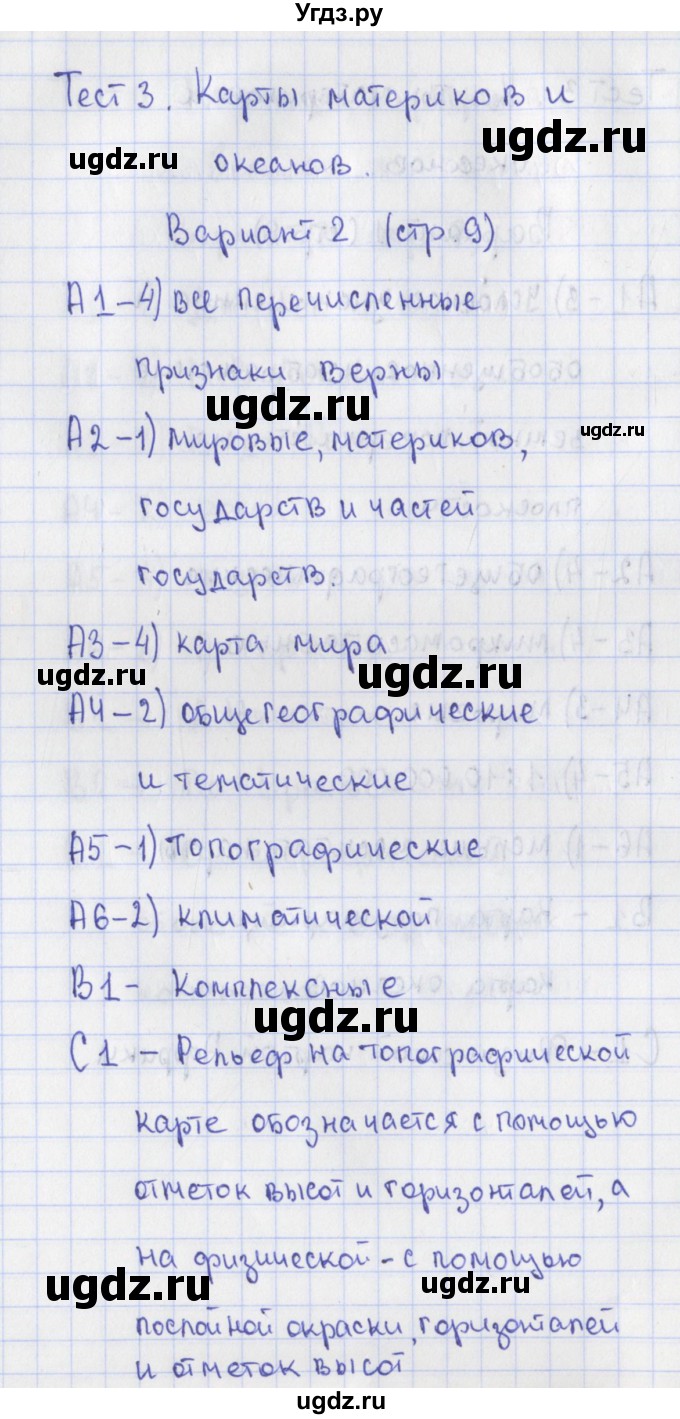 Угдз.ру
Тест 3. Карты материков и
ugdz.ru
ugdz.ru
океанов.
Вариант 2 (стр 9)
А1-4) все перечисленные
признаки верны
ugdz.ru
ugdz.ru
А2-1) мировые, материков,
государств и частей
государств.
А3-4) карта мира
ugdz.ru
ugdz.ru
А4-2) общегеографические
и тематические
А5-1) топографические
А6-2) климатической
В1- Комплексные
ugdz.ru
С1 - Рельеф на топографической
карте обозначается с помощью
отметок высот и горизонталей, а
на физической - с помощью
ugdz.ru
ugdz.ru
послойной окраски, горизонталей
и отметок высот
ugdz.ru